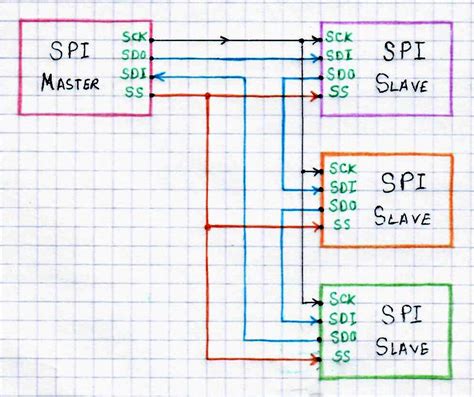 SPI
MASTER
SCK
SDO
SDI
SS
SCK
SDI
SDO
SS
SPI
SLAVE
SCK
SDI
SDO
SS
SPI
SLAVE
SCK
SDI
SDO
SS
SPI
SLAVE